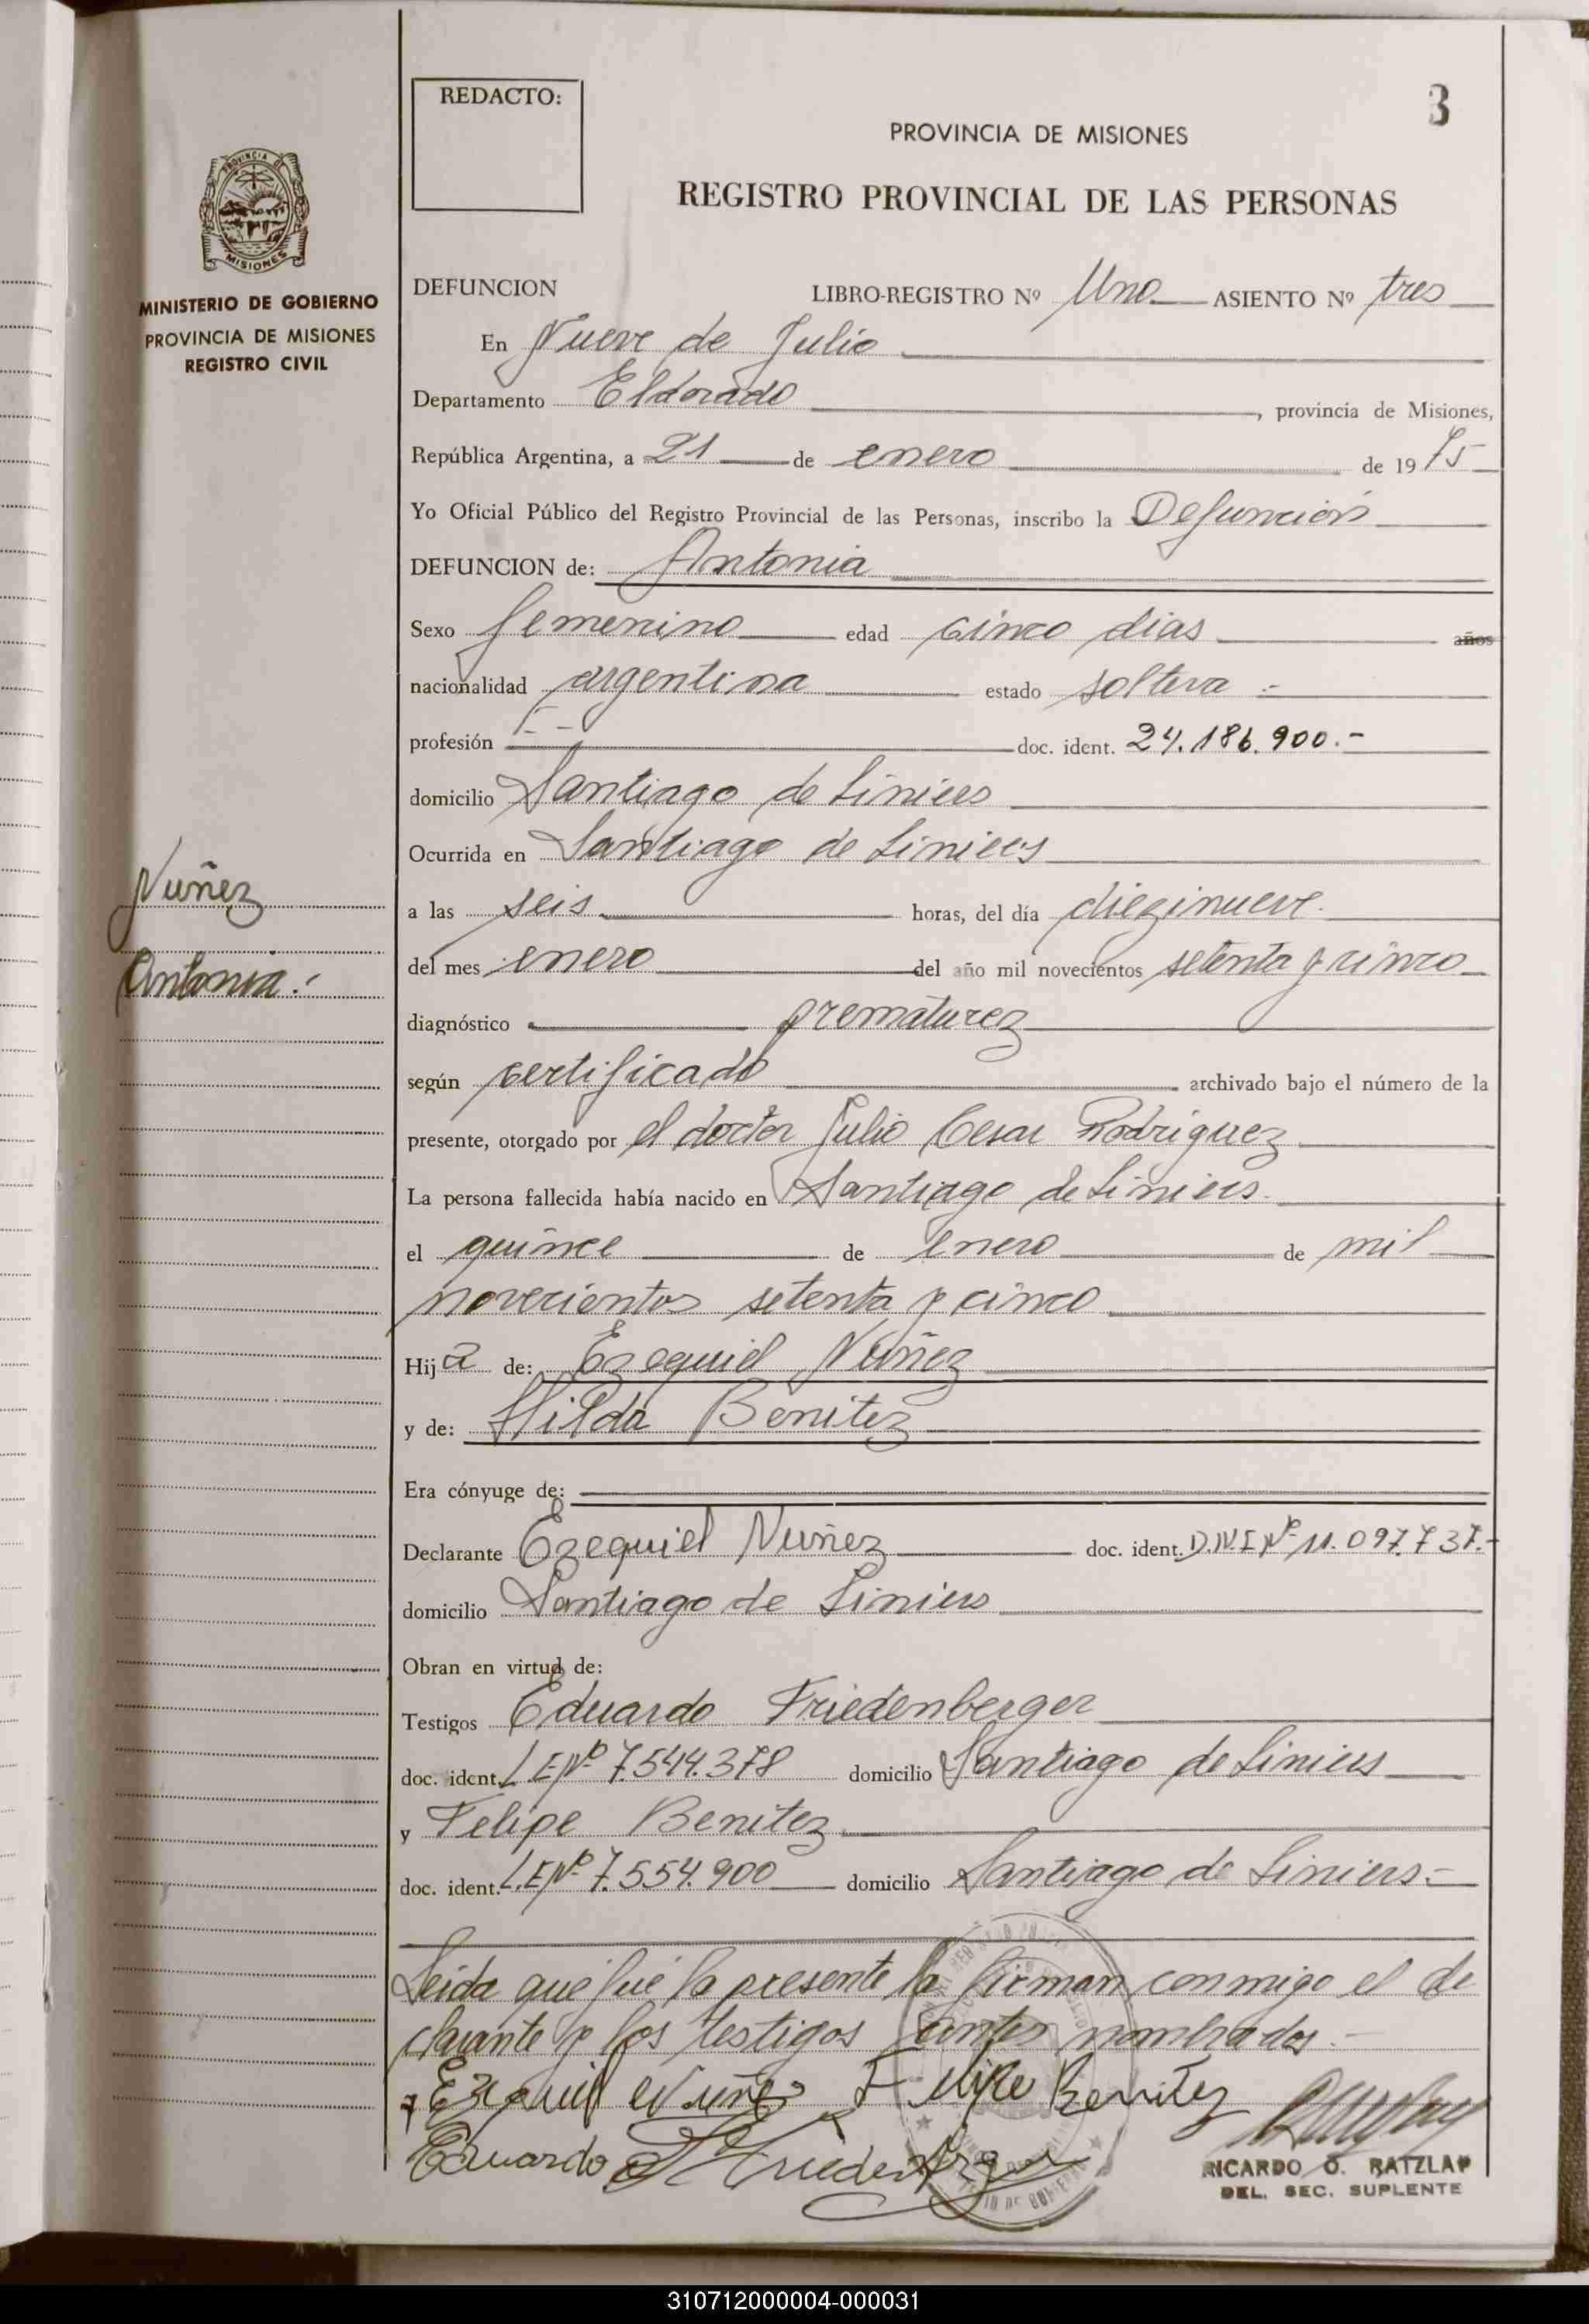 REDACTO:
3
PROVINCIA DE MISIONES
REGISTRO PROVINCIAL DE LAS PERSONAS
PROVINCIA DE
MISIONES
MINISTERIO DE GOBIERNO
PROVINCIA DE MISIONES
REGISTRO CIVIL
Nuñez
Antonia.-
DEFUNCION LIBRO-REGISTRO Nº Uno ASIENTO Nº tres
En Nueve de Julio
Departamento Eldorado, provincia de Misiones,
República Argentina, a 21 de enero de 1975
Yo Oficial Público del Registro Provincial de las Personas, inscribo la Defunción
DEFUNCION de: Antonia
Sexo femenino edad cinco dias años
nacionalidad argentina estado soltera -
profesión - - doc. ident. 24.186.900.-
domicilio Santiago de Liniers
Ocurrida en Santiago de Liniers
a las seis horas, del día diezinueve.
del mes enero del año mil novecientos setenta y cinco
diagnóstico prematurez
según certificado archivado bajo el número de la
presente, otorgado por el doctor Julio Cesar Rodriguez
La persona fallecida había nacido en Santiago de Liniers
el quince de enero de mil
novecientos setenta y cinco
Hija de: Ezequiel Nuñez
y de: Hilda Benitez
Era cónyuge de:
Declarante Ezequiel Nuñez doc. ident. D.N.I Nº 11.097.737.-
domicilio Santiago de Liniers
Obran en virtud de:
Testigos Eduardo Friedenberger
doc. ident. L.E Nº 7.544.378 domicilio Santiago de Liniers
y Felipe Benitez
doc. ident. L.E Nº 7.554.900 domicilio Santiago de Liniers.-
Leida que fué la presente la firman conmigo el de
clarante y los testigos antes nombrados.-
Ezequiel Nuñez Felipe Benitez
Eduardo Friedenberger
RICARDO O. RATZLAF
DEL. SEC. SUPLENTE
310712000004-000031